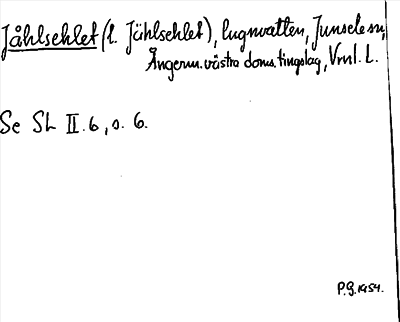 Jåhlsehlet (l. Jühlsehlet), lugnvatten, Junsele sn,
Ångerm. västra doms. tingslag, Vrnl. L.
Se Sh II. 6, s. 6.
P.G. 1954.